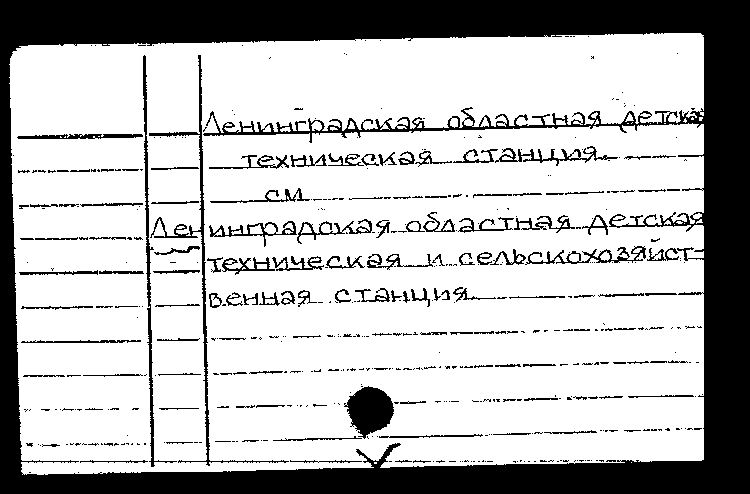 Ленинградская областная детская
техническая станция.
см
Ленинградская областная детская
техническая и сельскохозяйст-
венная станция.